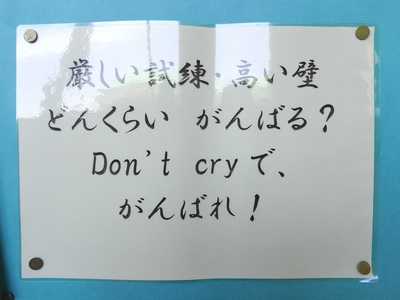 厳しい試練・高い壁
どんくらい がんばる？
Don't cryで、
がんばれ！